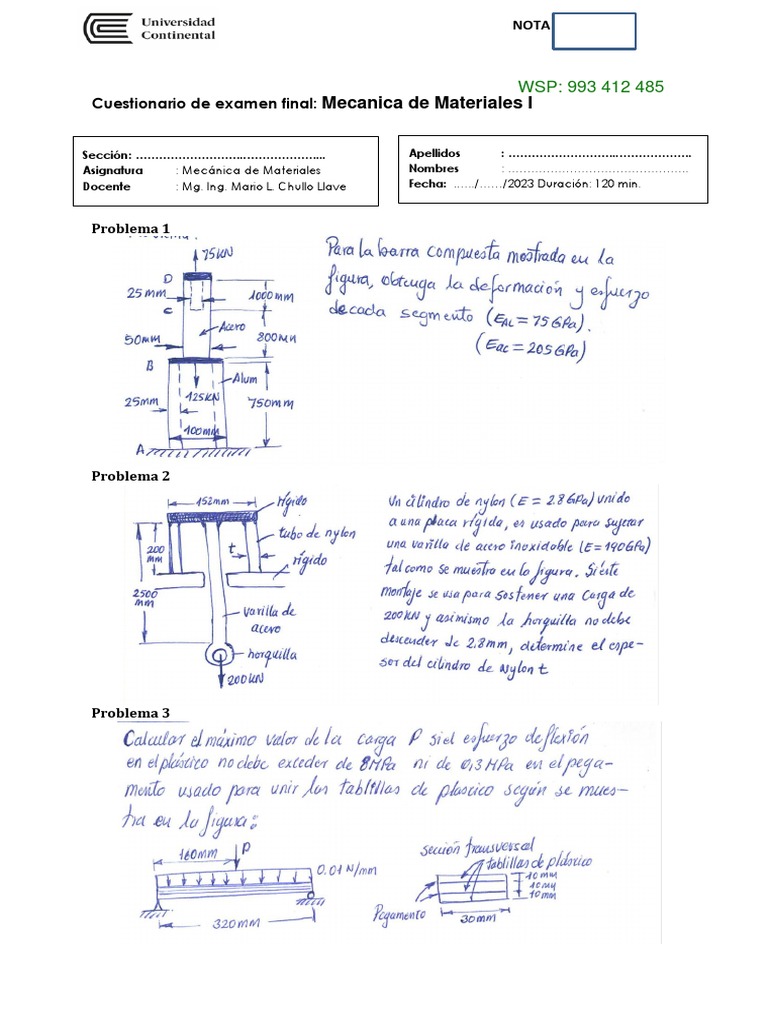 Universidad
Continental
NOTA
WSP: 993 412 485
Cuestionario de examen final: Mecanica de Materiales I
Sección: ……………………………………………...
Asignatura : Mecánica de Materiales
Docente : Mg. Ing. Mario L. Chullo Llave
Apellidos : ……………………………………………..
Nombres : ……………………………………………..
Fecha: ……/……/2023 Duración: 120 min.
Problema 1
75KN
D
25mm
1000mm
C
Acero
50mm
800mm
B
Alum
125KN
25mm
750mm
100mm
A
Para la barra compuesta mostrada en la
figura, obtenga la deformación y esfuerzo
de cada segmento (EAL = 75 GPa).
(Eac = 205 GPa)
Problema 2
152mm
rígido
tubo de nylon
200
mm
t
rígido
2500
mm
varilla de
acero
horquilla
200KN
Un cilindro de nylon (E = 2.8 GPa) unido
a una placa rígida, es usado para sujetar
una varilla de acero inoxidable (E = 190 GPa)
tal como se muestra en la figura. Si éste
montaje se usa para sostener una carga de
200KN y asimismo la horquilla no debe
descender de 2.8mm, determine el espe-
sor del cilindro de Nylon t
Problema 3
Calcular el máximo valor de la carga P si el esfuerzo de flexión
en el plástico no debe exceder de 8MPa ni de 0,3 MPa en el pega-
mento usado para unir las tablillas de plascico según se mues-
tra en la figura:
160mm
P
0.01 N/mm
320mm
sección transversal
tablillas de plástico
10 mm
10 mm
10 mm
Pegamento
30mm